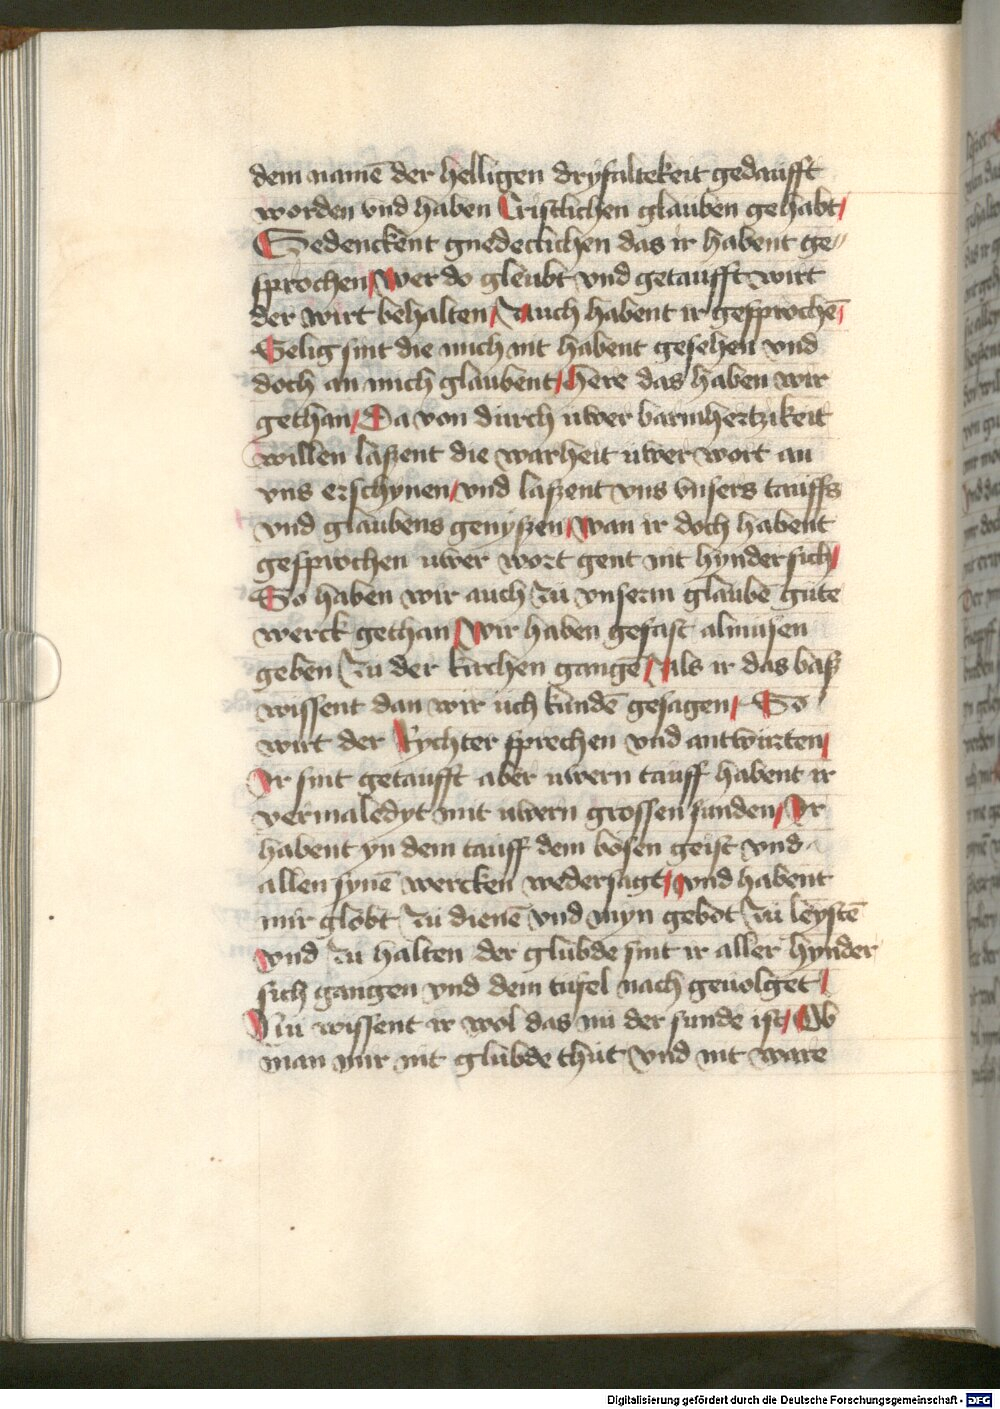 dem namē der helligen dryfaltekeit gedaufft
worden vnd haben Cristlichen glauben gehabt/
Gedenckent gnedeclichen das ir habent ge//
sprochen/ wer do gleubt vnd getaufft wirt
der wirt behalten/ Auch habent ir gesprochē/
Selig sint die mich nit habent gesehen vnd
doch an mich glaubent/ here das haben wir
gethan/ Da von durch uwer barmhertzikeit
willen laszent die warheit uwer wort an
vns erschynen/ vnd laszent vns vnsers tauffs
vnd glaubens genyszen/ wan ir doch habent
gesprochen uwer wort gent nit hyndersich/
So haben wir auch zu vnserm glaubē gute
werck gethan/ Wir haben gefast almusen
geben/ zu der kirchen gangē/ als ir das basz
wissent dan wir uch kundē gesagen/ So
wirt der Rychter sprechen vnd antwurten/
Ir sint getaufft aber uwern tauff habent ir
vermaledyt mit uwern grossen sunden/ Ir
habent yn dem tauff dem bosen geist vnd
allen synē wercken wedersagt/ vnd habent
mir globt zu dienē vnd myn gebot zu leystē
vnd zu halten der glubde sint ir aller hynder
sich gangen vnd dem tufel nach geuolget/
Nu wissent ir wol das nu der sunde ist/ Ob
man mir nit glubde thut vnd nit ware
Digitalisierung gefördert durch die Deutsche Forschungsgemeinschaft - DFG